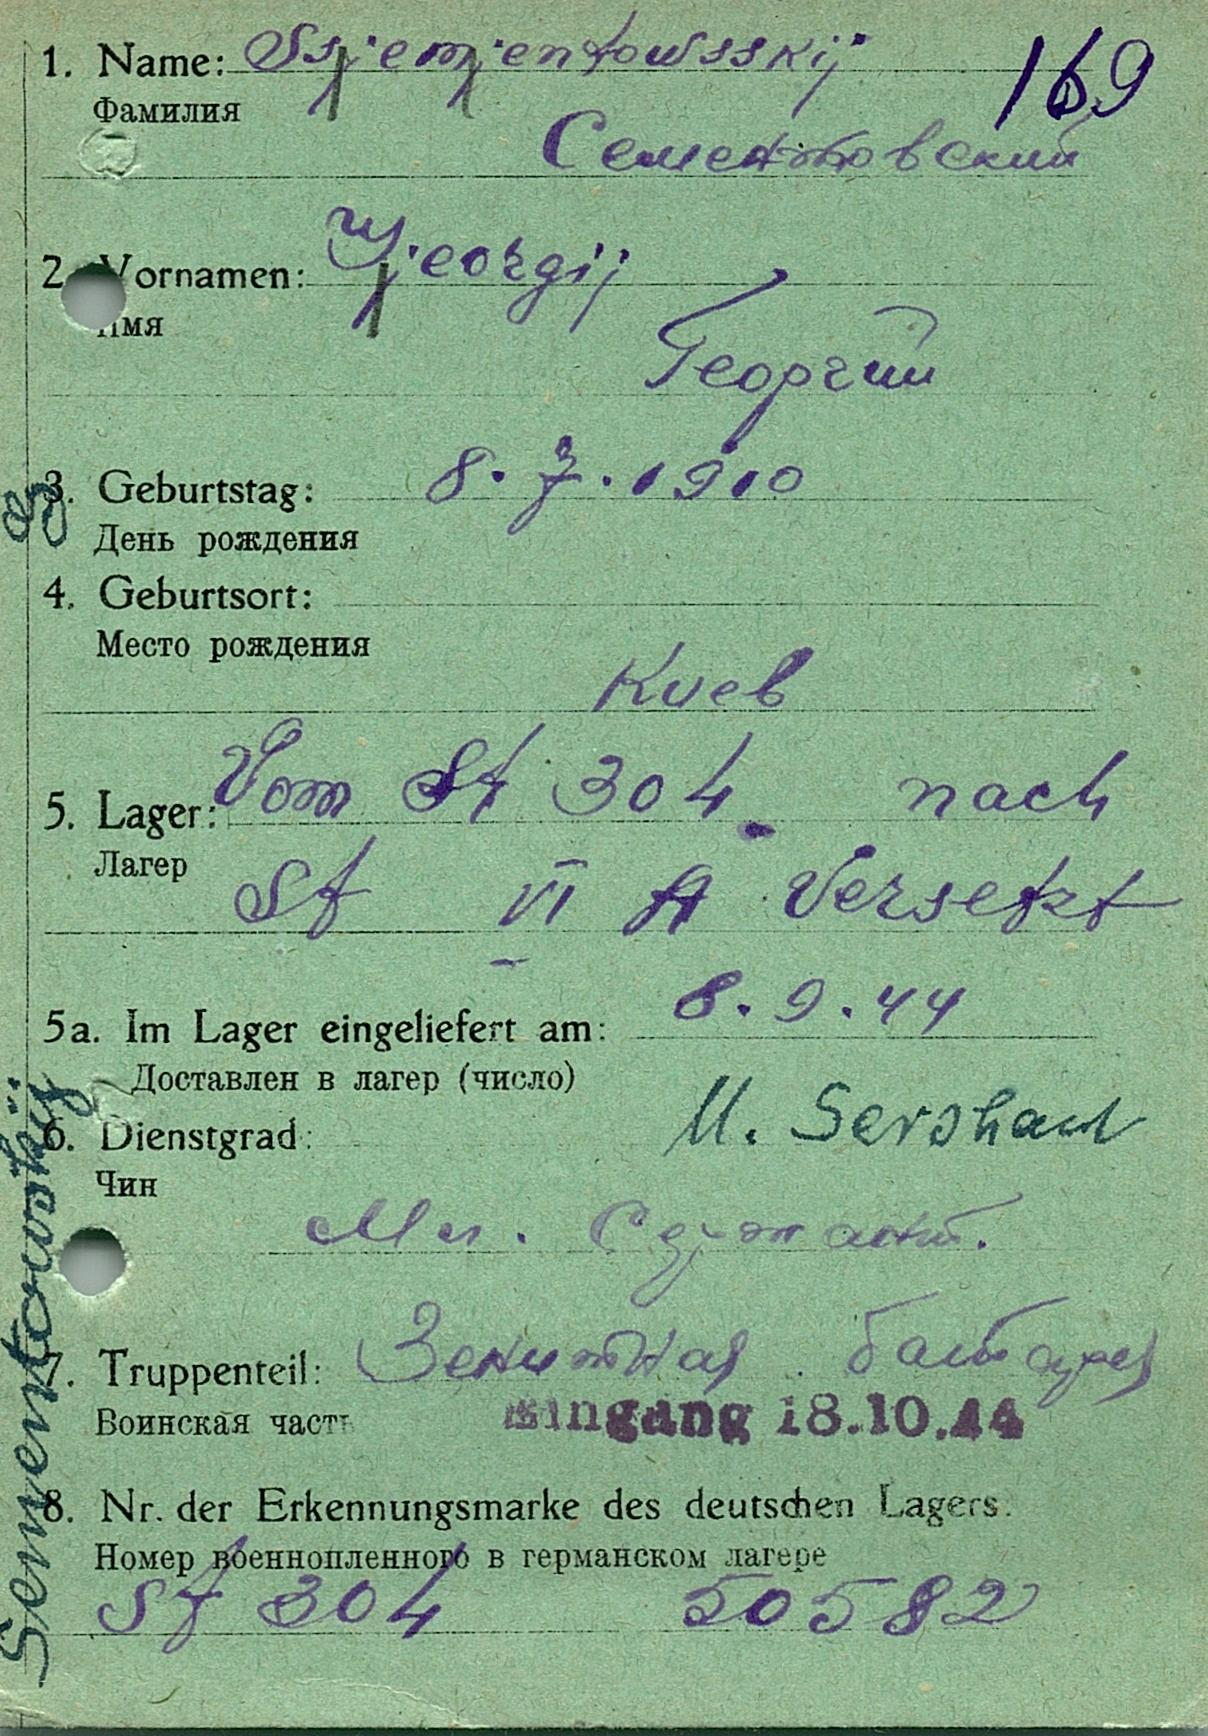 1. Name: Ssjemjentowsskij 169
Фамилия
Сементовский
2. Vornamen: Gjeorgij
Имя
Георгий
3. Geburtstag: 8. 7. 1910
День рождения
4. Geburtsort:
Место рождения
Киев
5. Lager: Vom St 304 nach
Лагер
St VI A versetzt
5a. Im Lager eingeliefert am: 8.9.44
Доставлен в лагер (число)
6. Dienstgrad: M. Sershant
Чин
Мл. Сержант.
7. Truppenteil: Зенитная батарея
Воинская часть Eingang 18.10.44
8. Nr. der Erkennungsmarke des deutschen Lagers.
Номер военнопленного в германском лагере
St 304 50582
Sementowskij